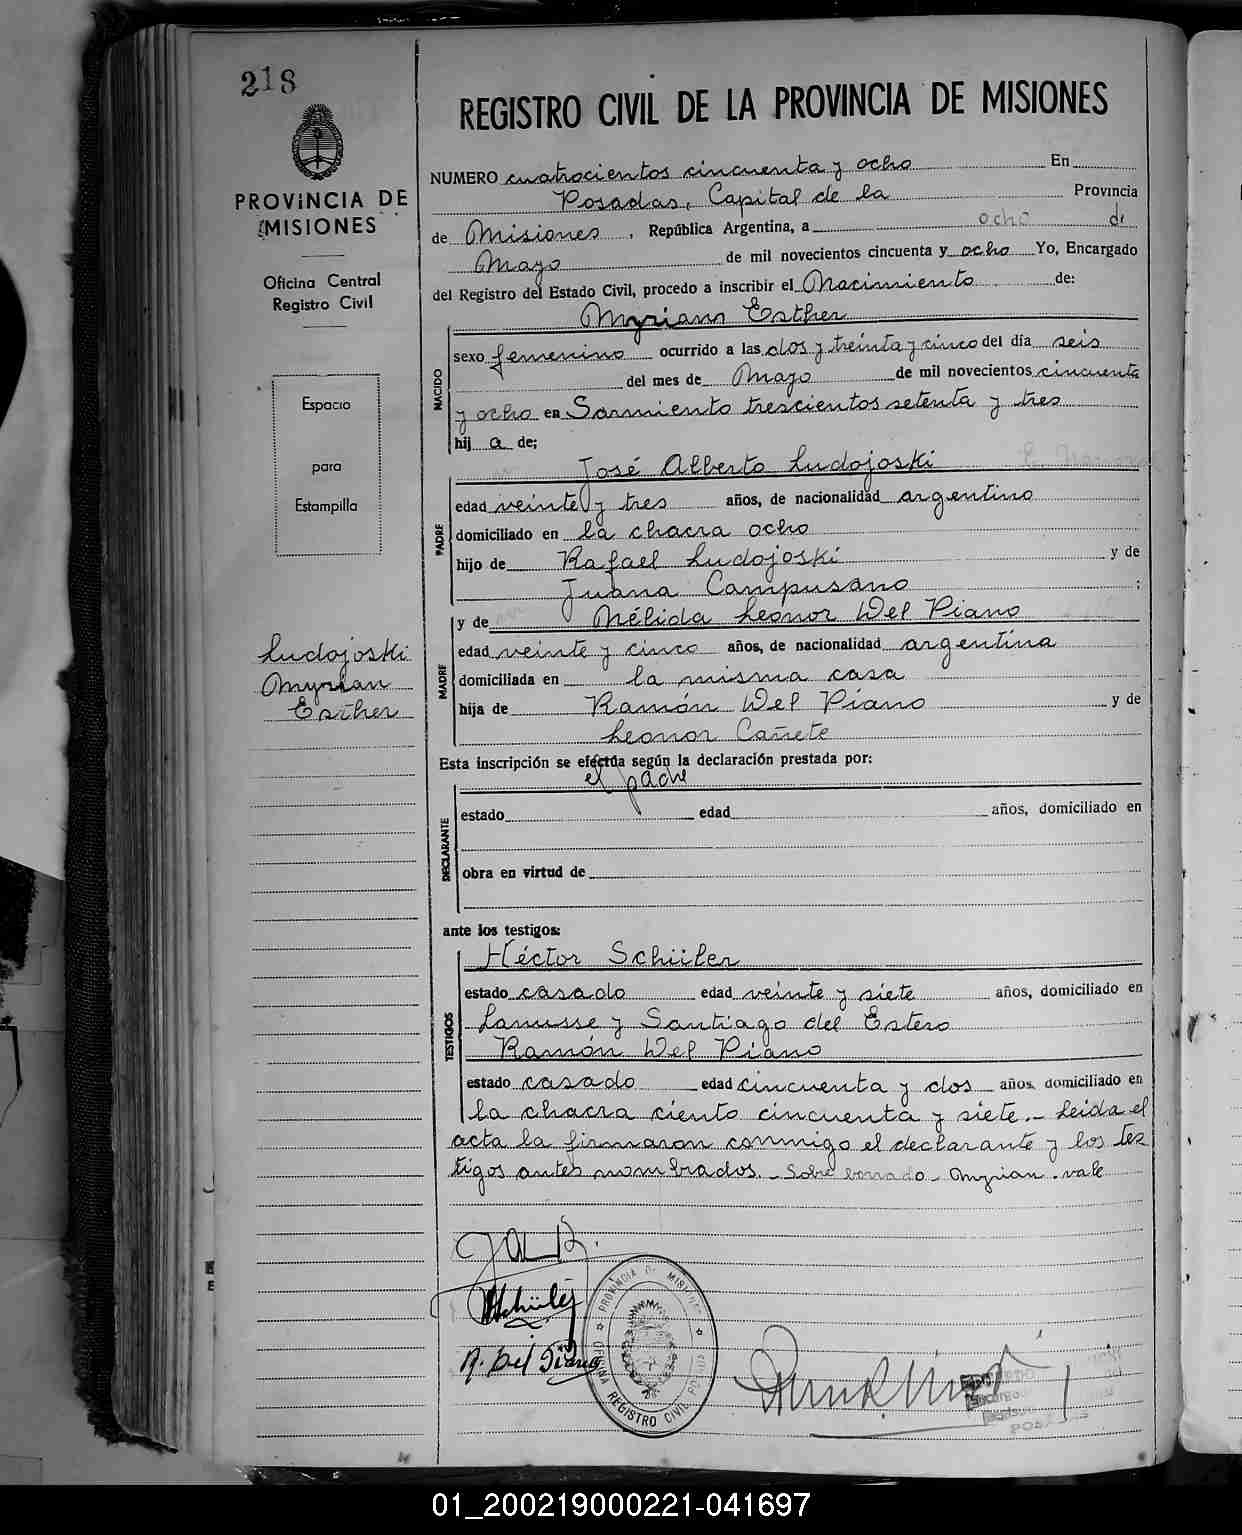 218
PROVINCIA DE
MISIONES
Oficina Central
Registro Civil
Espacio
para
Estampilla
Ludojoski
Myrian
Esther
REGISTRO CIVIL DE LA PROVINCIA DE MISIONES
NUMERO cuatrocientos cincuenta y ocho En
Posadas, Capital de la Provincia
de Misiones, República Argentina, a ocho de
Mayo de mil novecientos cincuenta y ocho Yo, Encargado
del Registro del Estado Civil, procedo a inscribir el Nacimiento de:
NACIDO
Myrian Esther
sexo femenino ocurrido a las dos y treinta y cinco del día seis
del mes de Mayo de mil novecientos cincuenta
y ocho en Sarmiento trescientos setenta y tres
hij a de;
PADRE
José Alberto Ludojoski
edad veinte y tres años, de nacionalidad argentino
domiciliado en la chacra ocho
hijo de Rafael Ludojoski y de
Juana Campusano ;
MADRE
y de Nélida Leonor Del Piano
edad veinte y cinco años, de nacionalidad argentina
domiciliada en la misma casa
hija de Ramón Del Piano y de
Leonor Cañete
Esta inscripción se efectúa según la declaración prestada por:
el padre
DECLARANTE
estado edad años, domiciliado en
obra en virtud de
ante los testigos:
TESTIGOS
Héctor Schüler
estado casado edad veinte y siete años, domiciliado en
Lanusse y Santiago del Estero
Ramón Del Piano
estado casado edad cincuenta y dos años, domiciliado en
la chacra ciento cincuenta y siete.- Leida el
acta la firmaron conmigo el declarante y los tes
tigos antes nombrados.- Sobre borrado - Myrian - vale
HSchüler
R. Del Piano
PROVINCIA DE MISIONES
OFICINA REGISTRO CIVIL POSADAS
01_200219000221-041697